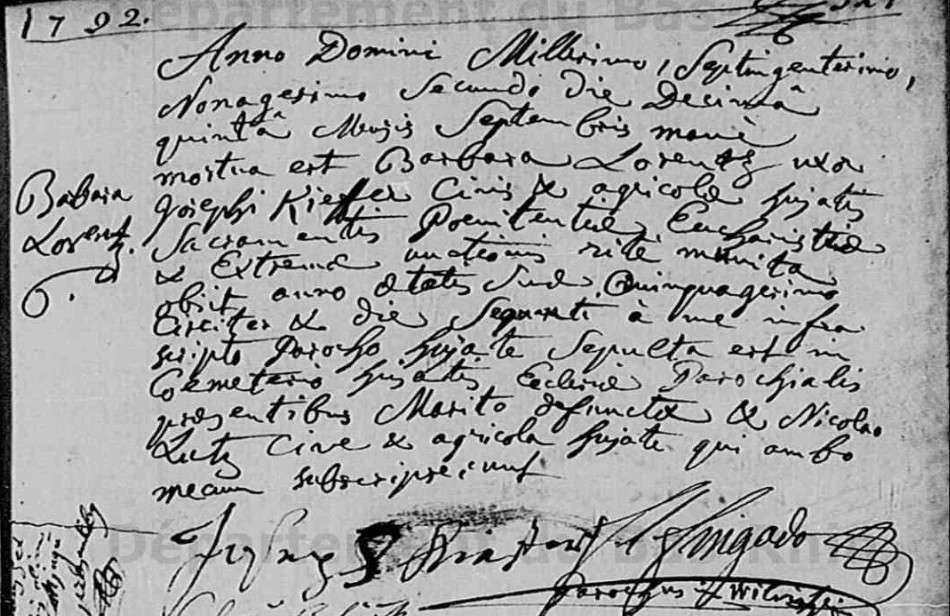 1792.
Anno Domini Millesimo, Septingentesimo,
Nonagesimo Secundo die Decimâ
quintâ Mensis Septembris manè
mortua est Barbara Lorentz uxor
Josephi Kieffer Civis & agricolæ hujatis
Sacramentis Poenitentiæ, Eucharistiæ
& Extremæ unctionis rite munita
obiit anno ætatis Suæ Quinquagesimo
Circiter & die Sequenti à me infra
scripto Parocho hujate Sepulta est in
Coemeterio hujatis Ecclesiæ Parochialis
præsentibus Marito defunctæ & Nicolao
Lutz Cive & agricola hujate qui ambo
mecum subscripserunt
Barbara
Lorentz.
Parochus
Département du Bas-Rhin
Département du Bas-Rhin